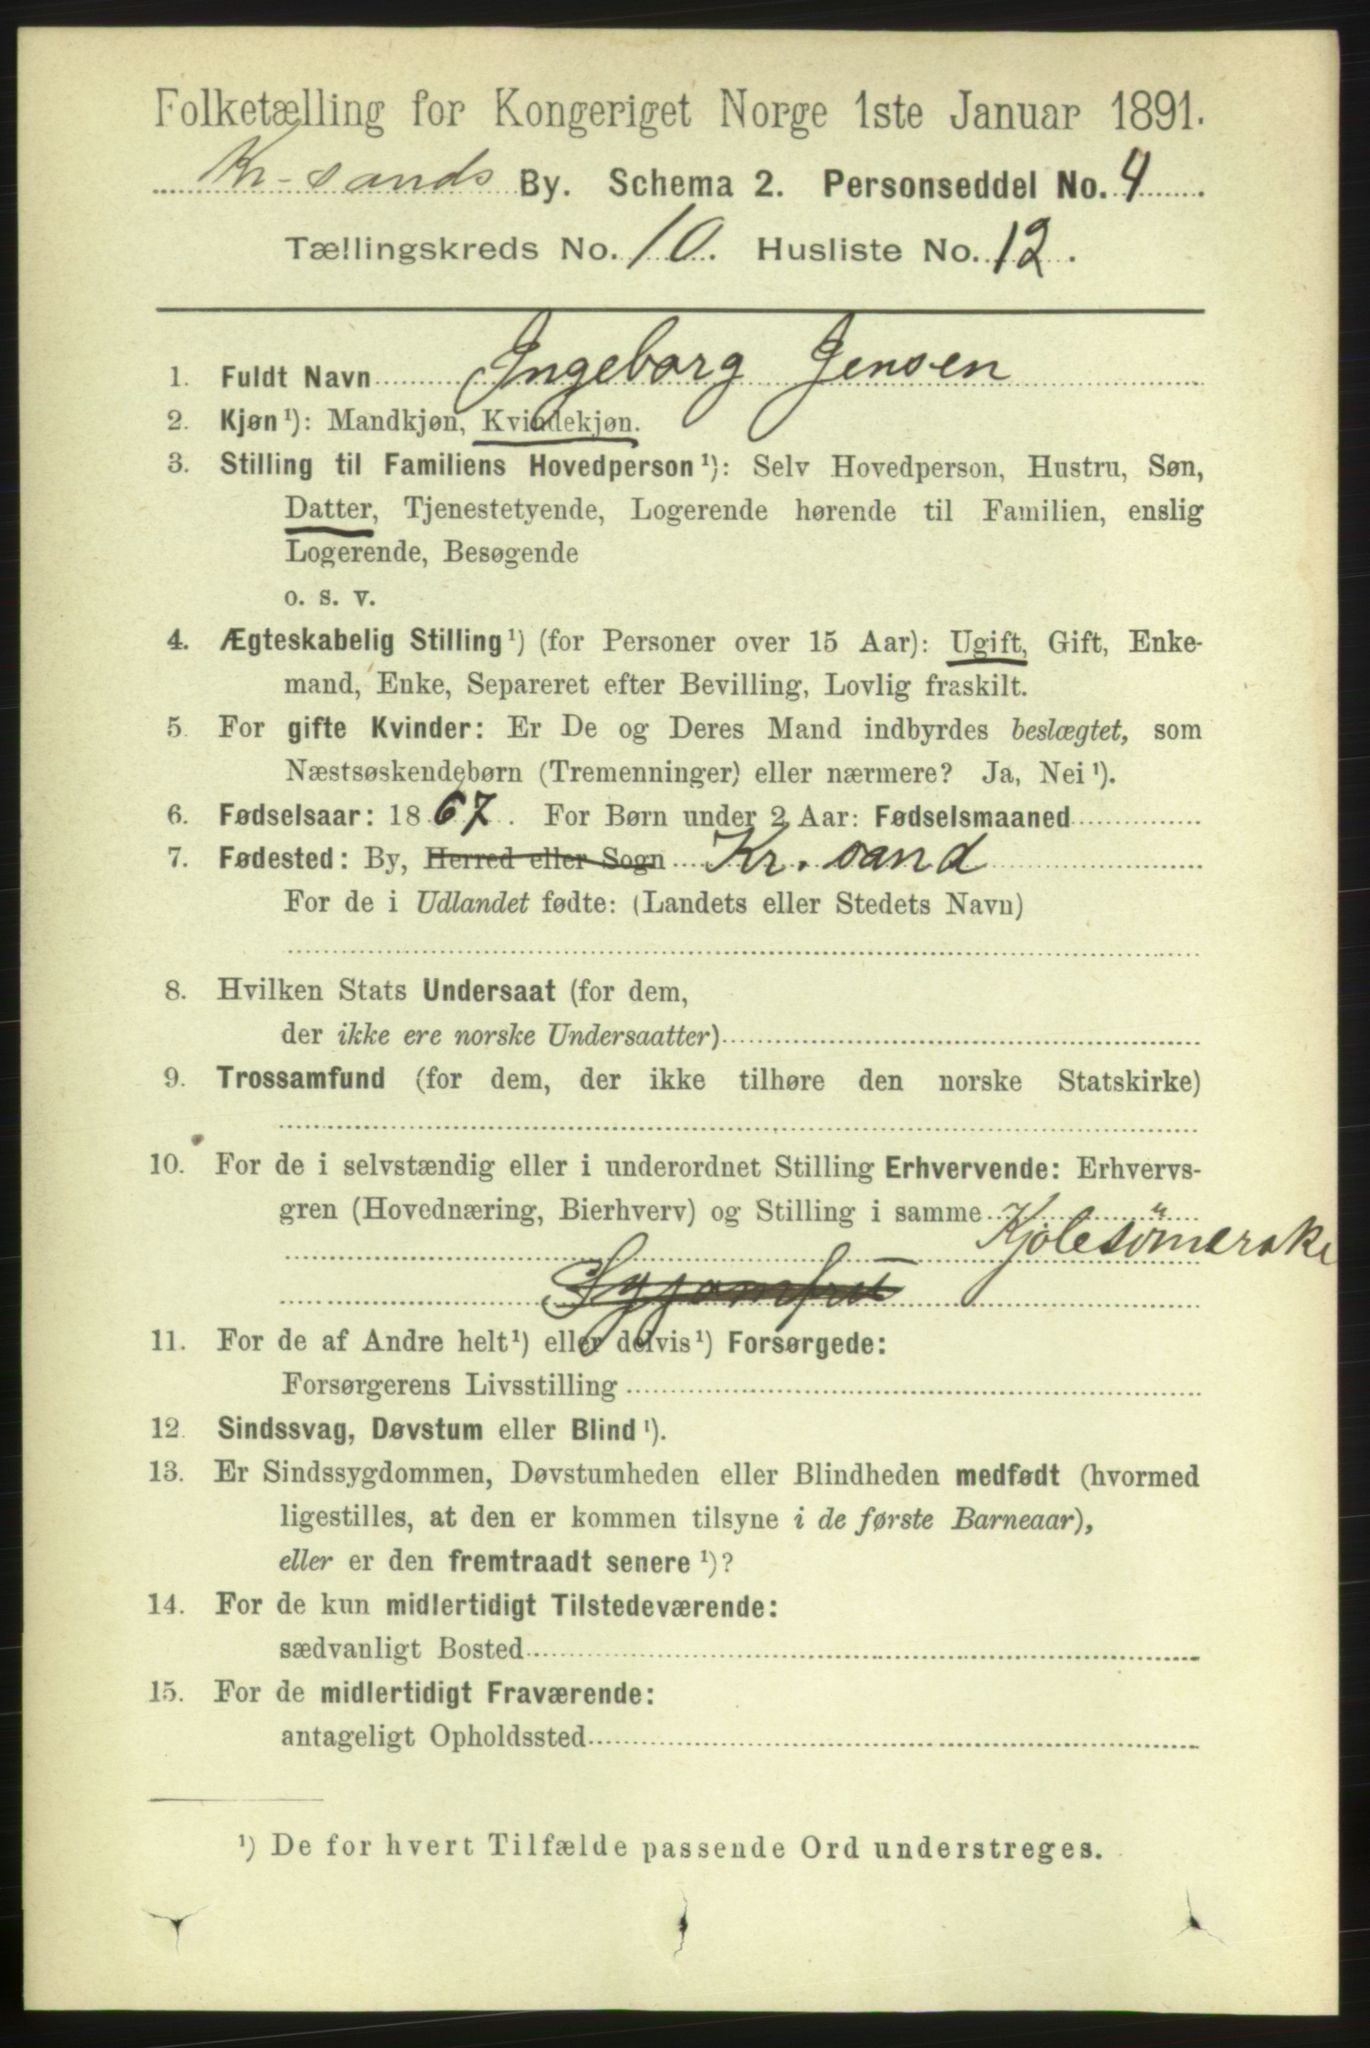 Folketælling for Kongeriget Norge 1ste Januar 1891.
Kr-sands By. Schema 2. Personseddel No. 4
Tællingskreds No. 10. Husliste No. 12.
1. Fuldt Navn Ingeborg Jensen
2. Kjøn¹): Mandkjøn, Kvindekjøn.
3. Stilling til Familiens Hovedperson¹): Selv Hovedperson, Hustru, Søn,
Datter, Tjenestetyende, Logerende hørende til Familien, enslig
Logerende, Besøgende
o. s. v.
4. Ægteskabelig Stilling¹) (for Personer over 15 Aar): Ugift, Gift, Enke-
mand, Enke, Separeret efter Bevilling, Lovlig fraskilt.
5. For gifte Kvinder: Er De og Deres Mand indbyrdes beslægtet, som
Næstsøskendebørn (Tremenninger) eller nærmere? Ja, Nei¹).
6. Fødselsaar: 1867. For Børn under 2 Aar: Fødselsmaaned
7. Fødested: By, Herred eller Sogn Kr. sand
For de i Udlandet fødte: (Landets eller Stedets Navn)
8. Hvilken Stats Undersaat (for dem,
der ikke ere norske Undersaatter)
9. Trossamfund (for dem, der ikke tilhøre den norske Statskirke)
10. For de i selvstændig eller i underordnet Stilling Erhvervende: Erhvervs-
gren (Hovednæring, Bierhverv) og Stilling i samme
Kjolesömerske
Syjomfru
11. For de af Andre helt¹) eller delvis¹) Forsørgede:
Forsørgerens Livsstilling
12. Sindssvag, Døvstum eller Blind¹).
13. Er Sindssygdommen, Døvstumheden eller Blindheden medfødt (hvormed
ligestilles, at den er kommen tilsyne i de første Barneaar),
eller er den fremtraadt senere¹)?
14. For de kun midlertidigt Tilstedeværende:
sædvanligt Bosted
15. For de midlertidigt Fraværende:
antageligt Opholdssted
¹) De for hvert Tilfælde passende Ord understreges.